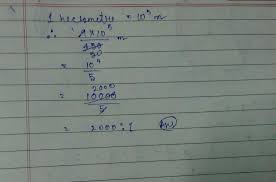 1 hectometre = 10⁵ m
∴ 1×10⁵ m
50
= 10⁴
5
2000
= 10000
5
= 2000 : 1